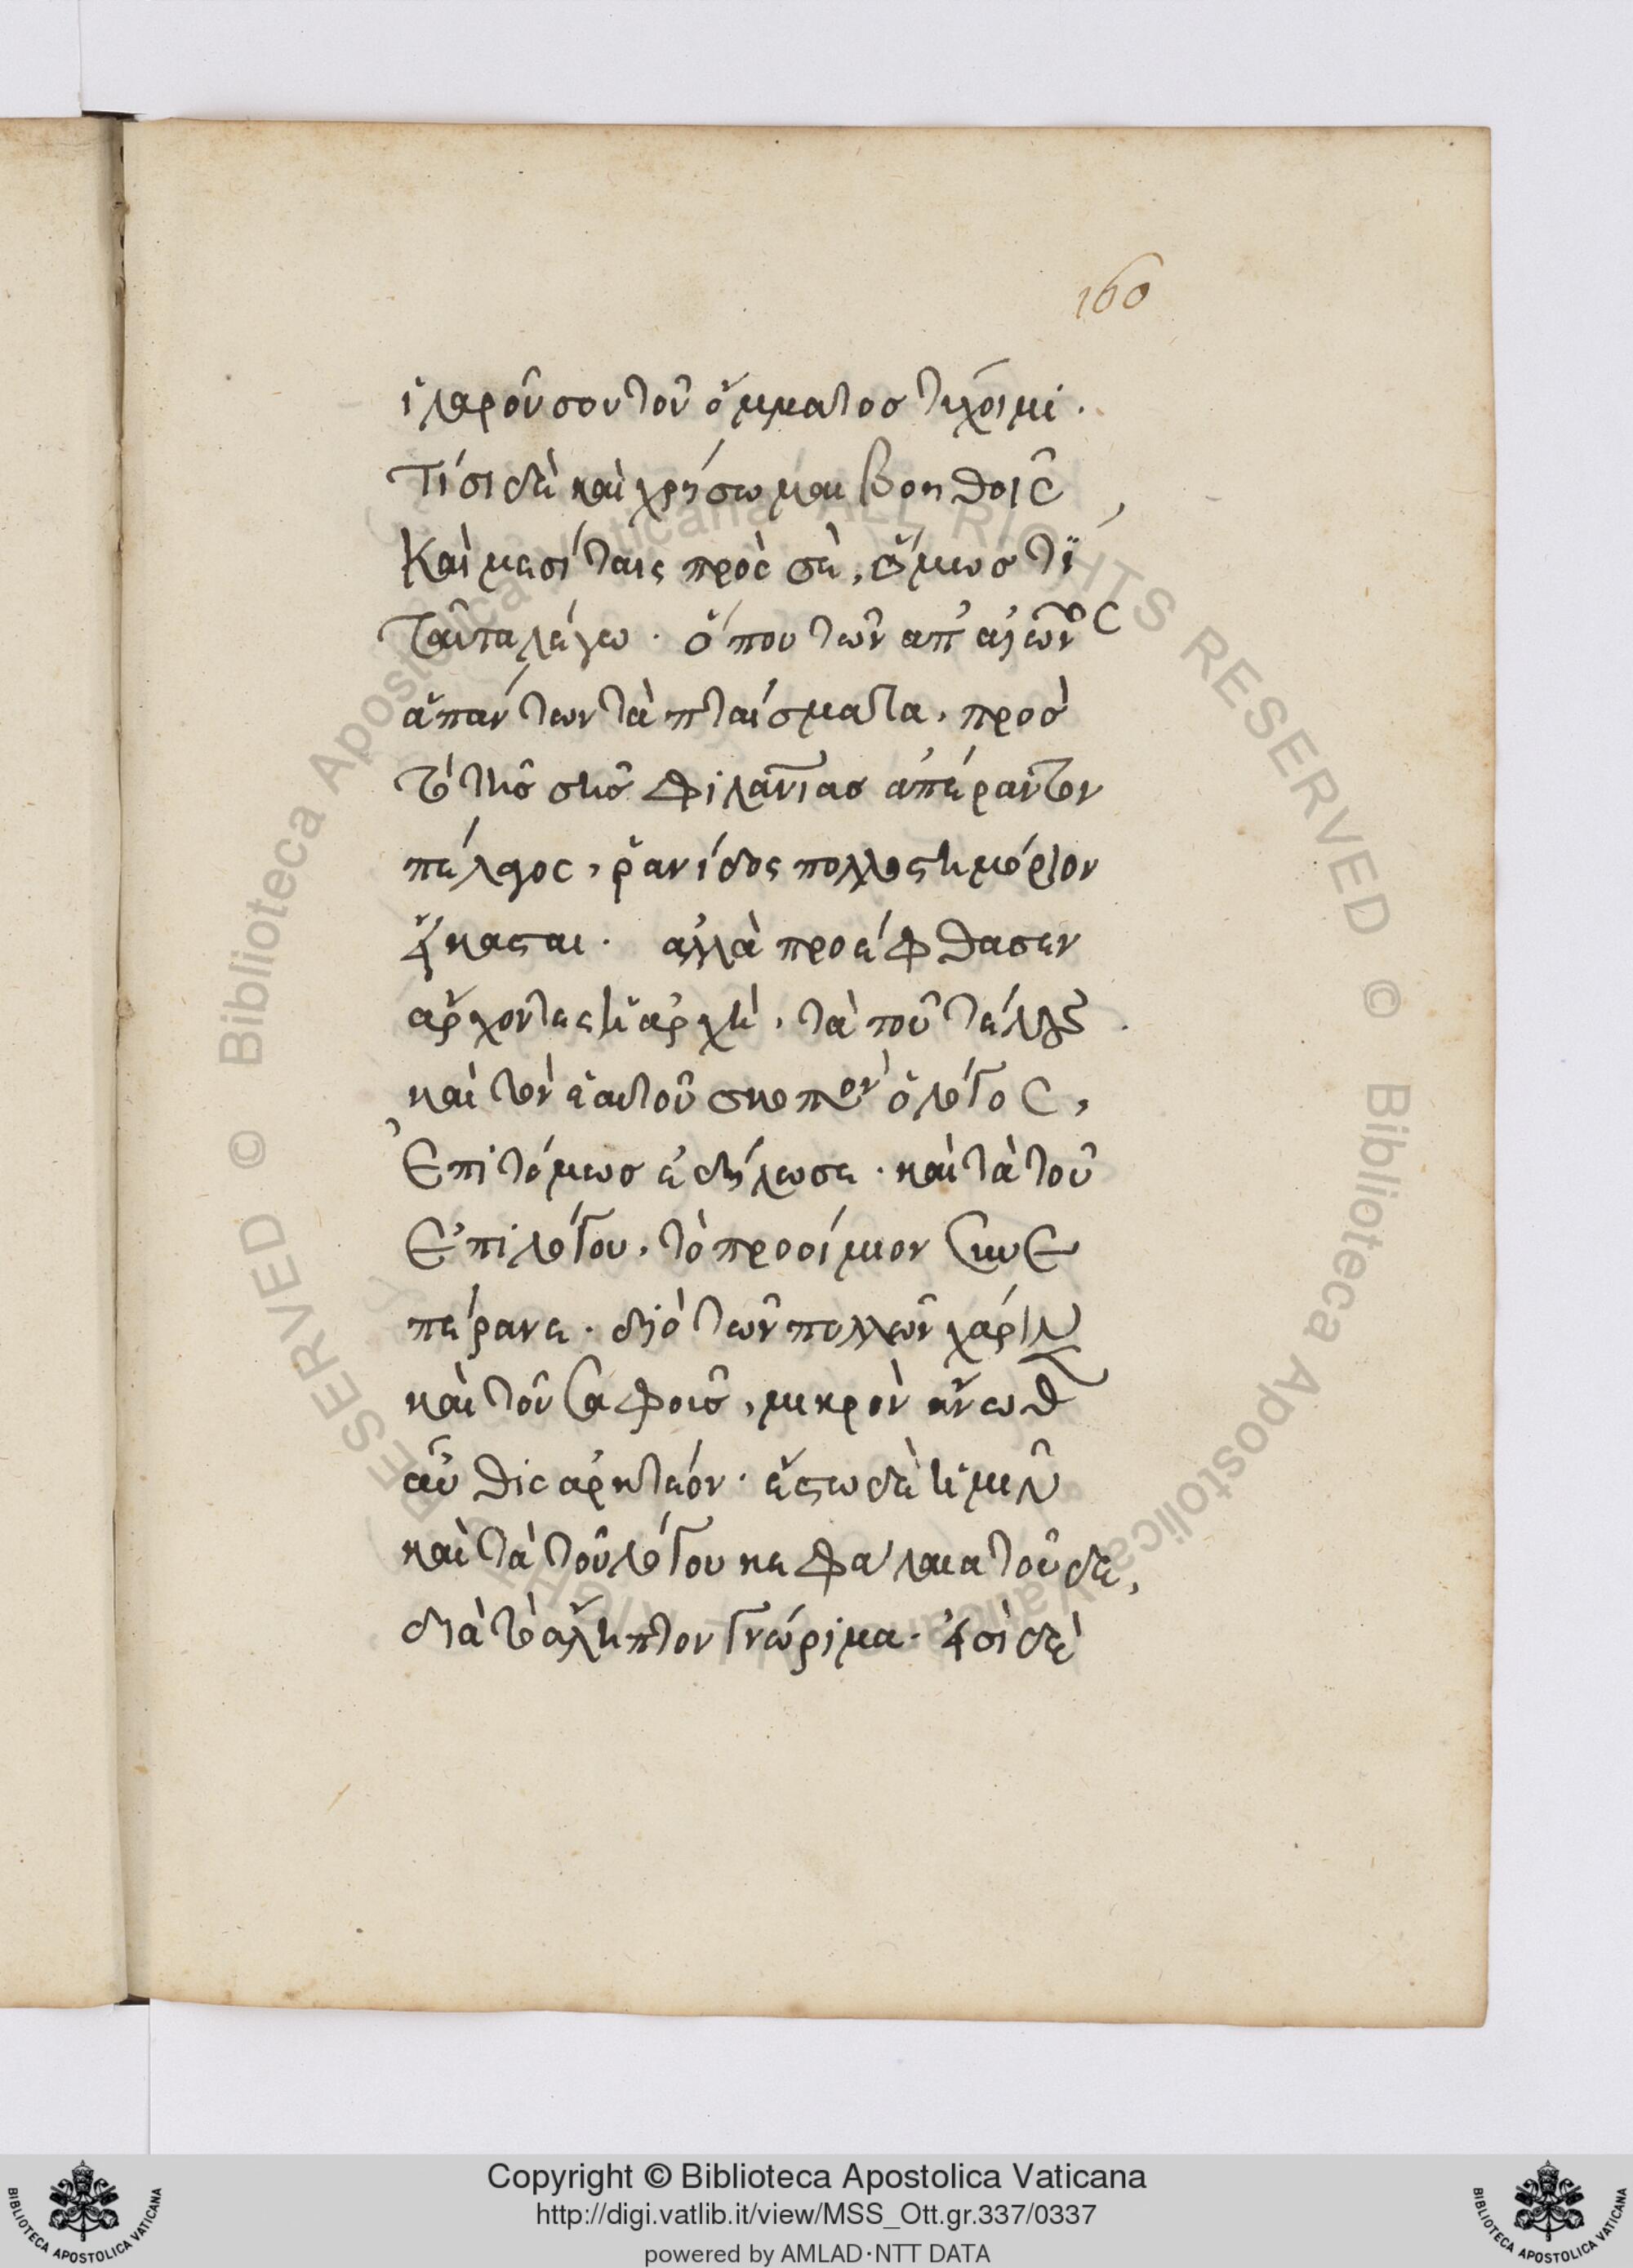 160
ἱλαροῦ σου τοῦ ὄμματος τύχοιμι.
Τίσι δὲ καὶ χρήσωμαι βοηθοῖς
Καὶ μεσίταις πρὸς σὲ, ὅμως τί
Ταῦτα λέγω. ὅπου τῶν ἀπ' αἰῶνος
ἁπάντων τὰ πταίσματα, πρὸς
τὸ τῆς σῆς φιλανίας ἀπέραντον
πέλαγος, ῥανίδος πολλοστημόριον
εἴκασται. ἀλλὰ προέφθασεν
ἄρχοντες ἡ ἀρχὴ, τὰ ποῦ τέλους.
καὶ τὸν ἑαυτοῦ σκοπὸν ὁ λόγος,
Ἐπιτόμως ἐδήλωσε. καὶ τὰ τοῦ
Ἐπιλόγου, τὸ προοίμιον συνε
πέρανε. διὸ τῶν πολλῶν χάριν
καὶ τοῦ σαφοῦς, μικρὸν ἄνωθεν
αὖθις ἀρκτέον. ἔστω δὲ ἡμῖν
καὶ τὰ τοῦ λόγου κεφάλαια τοῦδε,
διὰ τὸ ἄληπτον γνώριμα. εἰσὶ δὲ
© Biblioteca Apostolica Vaticana ALL RIGHTS RESERVED
Copyright © Biblioteca Apostolica Vaticana
http://digi.vatlib.it/view/MSS_Ott.gr.337/0337
powered by AMLAD·NTT DATA
BIBLIOTECA APOSTOLICA VATICANA
BIBLIOTECA APOSTOLICA VATICANA